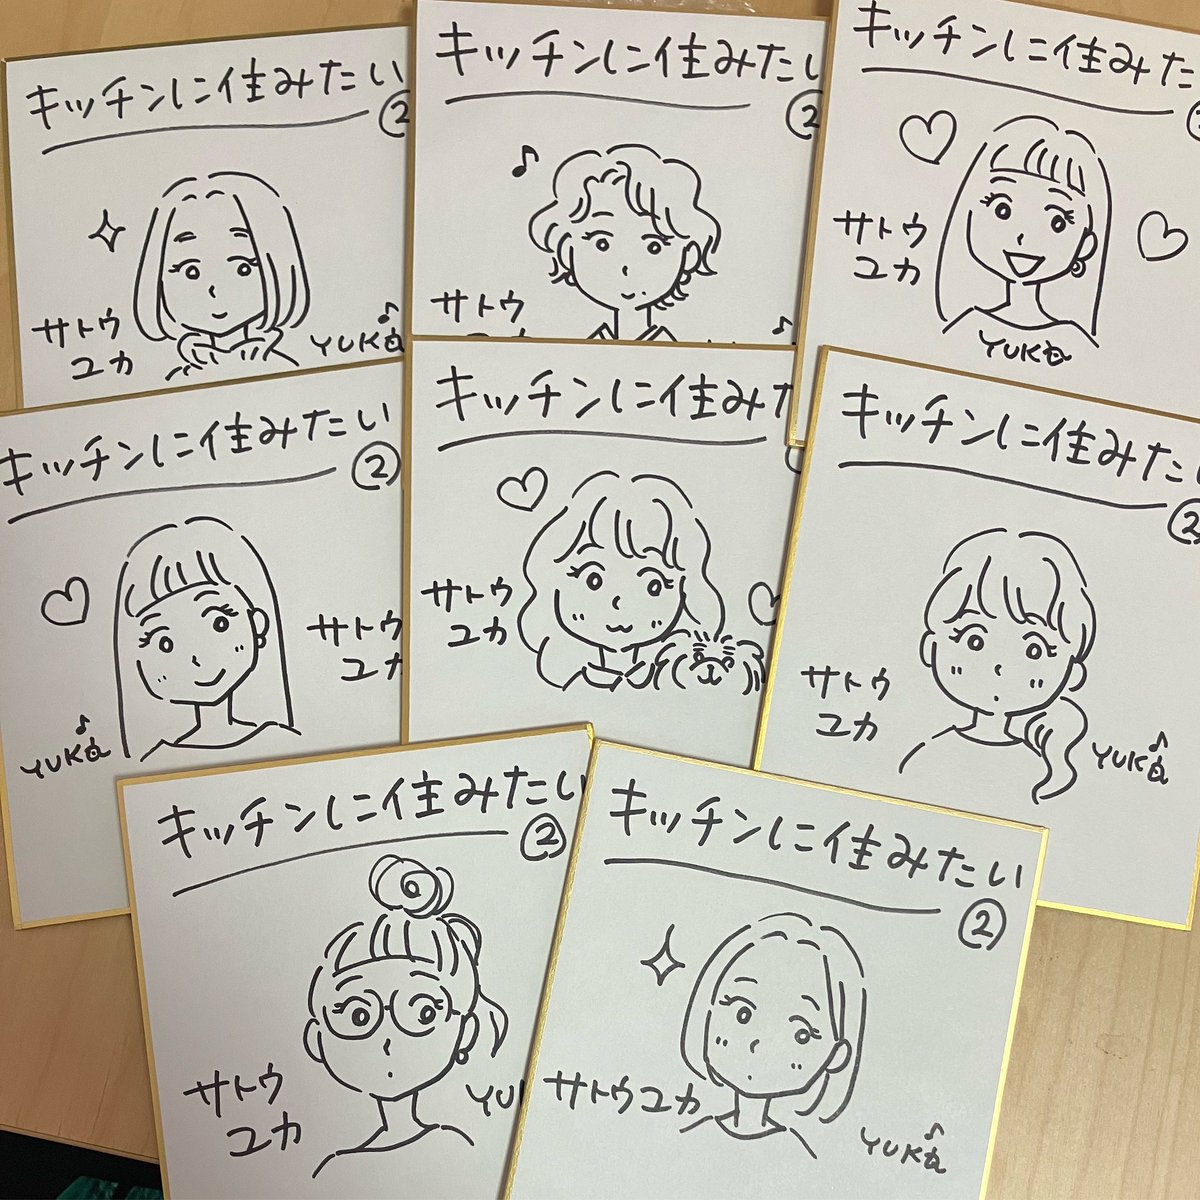 キッチンに住みたい
②
サトウ
ユカ
YUKA
キッチンに住みたい
②
サトウ
キッチンに住みた
サトウ
ユカ
YUKA
キッチンに住みたい
②
サトウ
ユカ
YUKA
キッチンに住みた
サトウ
ユカ
キッチンに住みたい
②
サトウ
ユカ
YUKA
キッチンに住みたい
②
サトウ
ユカ
YU
キッチンに住みたい
②
サトウユカ
YUKA